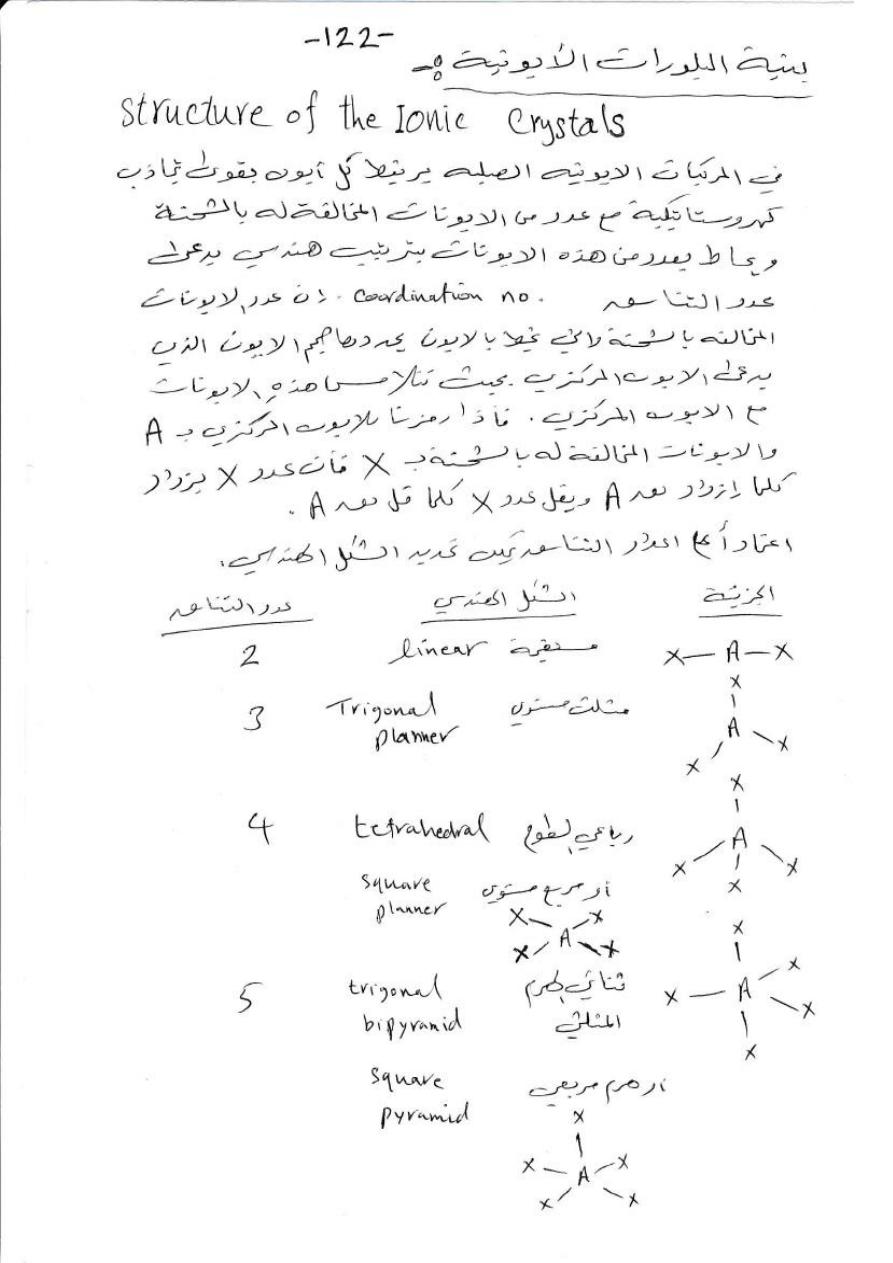 -122-
بنية البلورات الأيونية :-
Structure of the Ionic Crystals
في المركبات الايونيه الصلبه يرتبط كل أيون بقوى تجاذب
كهروستاتيكية مع عدد من الايونات المخالفة له بالشحنة
ويحاط بعدد من هذه الايونات بترتيب هندسي يدعى
عدد التناسق coordination no. ان عدد الايونات
المخالفه بالشحنة والتي تحيط بالايون يحددها حجم الايون الذي
يدعى الايون المركزي بحيث تتلامس هذه الايونات
مع الايون المركزي. فأذا رمزنا للايون المركزي بـ A
والايونات المخالفة له بالشحنة بـ X فأن عدد X يزداد
كلما إزداد نصف A ويقل عدد X كلما قل نصف A.
اعتماداً على اعداد التناسق يمكن تحديد الشكل الهندسي.
الجزيئة الشكل الهندسي عدد التناسق
X — A — X مستقيمة linear 2
X
A
X X
مثلث مستوي Trigonal 3
planner
X
A
X X
X
رباعي السطوح tetrahedral 4
أو مربع مستوي square
planner
X X
A
X X
X
X
X — A X
X
ثنائي الهرم trigonal 5
المثلثي bipyramid
أو هرم مربعي square
pyramid
X
X A X
X X